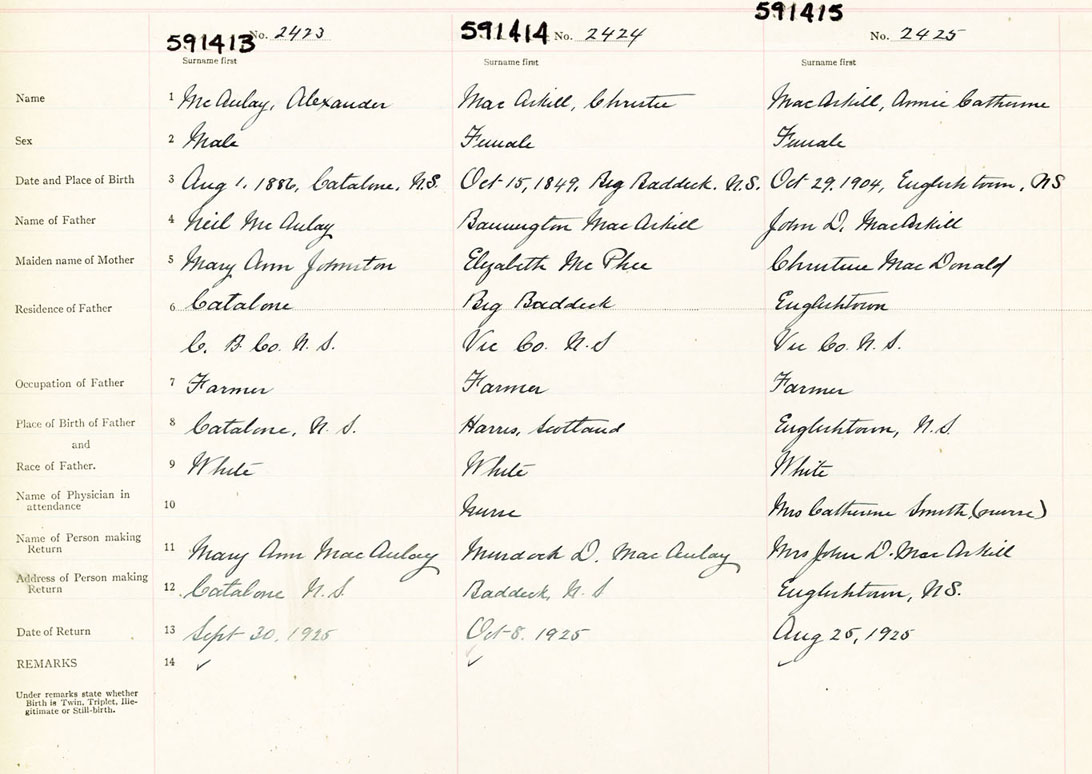 591413 No. 2423 591414 No. 2424 591415 No. 2425
Surname first Surname first Surname first
Name 1 McAulay, Alexander MacAskill, Christie MacAskill, Annie Catherine
Sex 2 Male Female Female
Date and Place of Birth 3 Aug 1. 1886, Catalone, N.S. Oct 15, 1849, Big Baddeck. N.S. Oct 29. 1904, Englishtown, NS
Name of Father 4 Neil McAulay Bannington MacAskill John D. MacAskill
Maiden name of Mother 5 Mary Ann Johnston Elizabeth McPhee Christine MacDonald
Residence of Father 6 Catalone Big Baddeck Englishtown
C. B. Co. N. S. Vic Co. N. S Vic Co. N. S.
Occupation of Father 7 Farmer Farmer Farmer
Place of Birth of Father 8 Catalone, N. S. Harris, Scotland Englishtown, N.S.
and
Race of Father. 9 White White White
Name of Physician in
attendance 10 Nurse Mrs Catherine Smith (nurse)
Name of Person making
Return 11 Mary Ann MacAulay Murdock D. MacAulay Mrs John D. MacAskill
Address of Person making
Return 12 Catalone N.S Baddeck, N. S Englishtown, NS.
Date of Return 13 Sept 30, 1925 Oct 8. 1925 Aug 25, 1925
REMARKS 14 ✓ ✓ ✓
Under remarks state whether
Birth is Twin, Triplet, Ille-
gitimate or Still-birth.